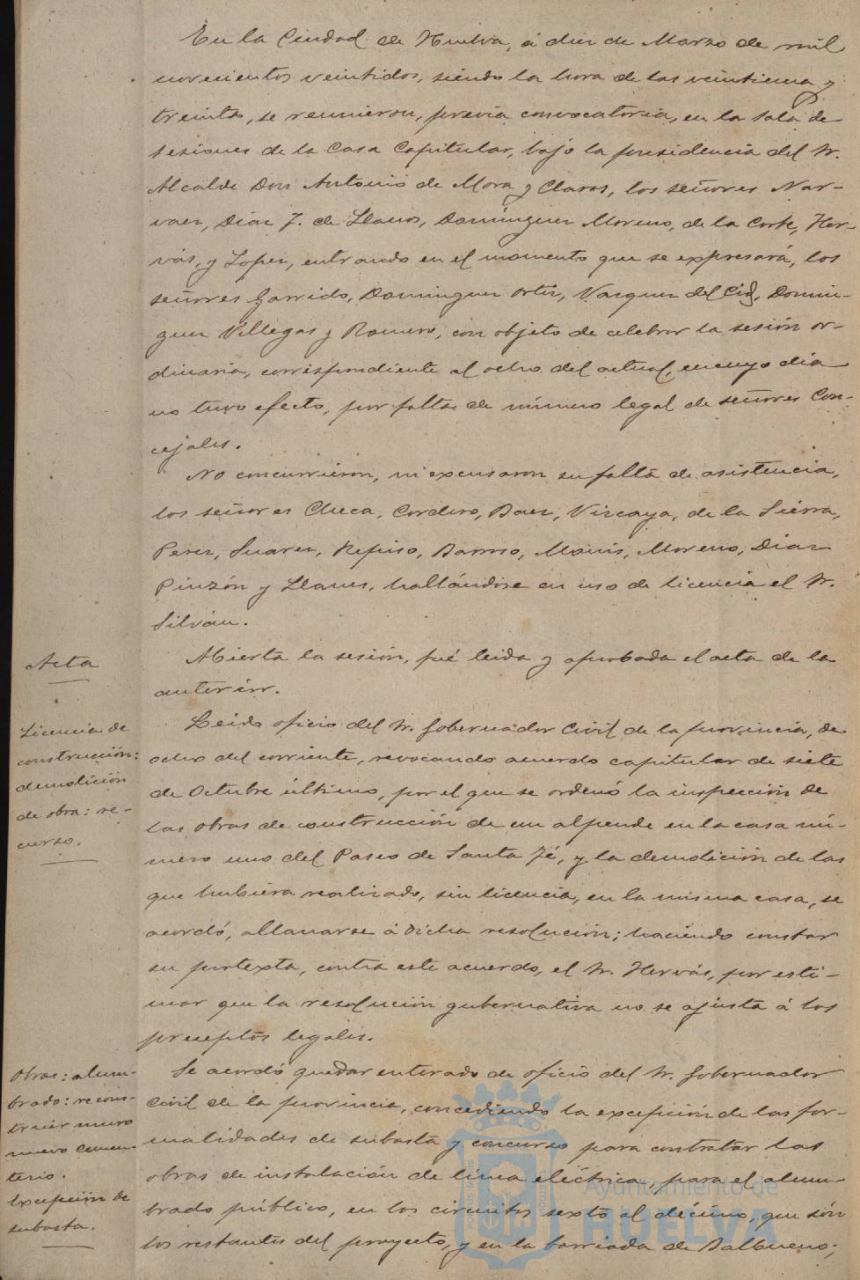 En la Ciudad de Huelva, á diez de Marzo de mil
novecientos veintidos, siendo la hora de las veintiuna y
treinta, se reunieron, previa convocatoria, en la sala de
sesiones de la Casa Capitular, bajo la presidencia del Sr.
Alcalde Don Antonio de Mora y Claros, los señores Nar-
vaez, Díaz F. de Llanos, Domínguez Moreno, de la Corte, Her-
vás, y Lopez, entrando en el momento que se expresará, los
señores Garrido, Dominguez Ortiz, Vazquez del Cid, Domin-
guez Villegas y Romero, con objeto de celebrar la sesión or-
dinaria, correspondiente al ocho del actual, en cuyo dia
no tuvo efecto, por falta de número legal de señores Con-
cejales.
No concurrieron, ni excusaron su falta de asistencia,
los señores Checa, Cordero, Baez, Vizcaya, de la Sierra,
Perez, Suarez, Repiso, Barroso, Monís, Moreno, Díaz
Pinzón y Llanes, hallándose en uso de licencia el Sr.
Silván.
Acta
Abierta la sesión, fué leida y aprobada el acta de la
anterior.
Licencia de
construcción:
demolición
de obra: re-
curso.
Leido oficio del Sr. Gobernador Civil de la provincia, de
ocho del corriente, revocando acuerdo capitular de siete
de Octubre último, por el que se ordenó la inspección de
las obras de construcción de un alpende en la casa nú-
mero uno del Paseo de Santa Fé, y la demolición de las
que hubiera realizado, sin licencia, en la misma casa, se
acordó, allanarse á dicha resolución; haciendo constar
su protexta, contra este acuerdo, el Sr. Hervás, por esti-
mar que la resolución gubernativa no se ajusta á los
preceptos legales.
Obras: alum-
brado: recons-
truir muro
nuevo Cemen-
terio.
Excepción de
subasta.
Se acordó quedar enterado de oficio del Sr. Gobernador
Civil de la provincia, concediendo la excepción de las for-
malidades de subasta y concurso para contratar las
obras de instalación de línea eléctrica, para el alum-
brado público, en los circuitos sexto al décimo, que són
los restantes del proyecto, y en la barriada de Balbueno;
Ayuntamiento de
HUELVA